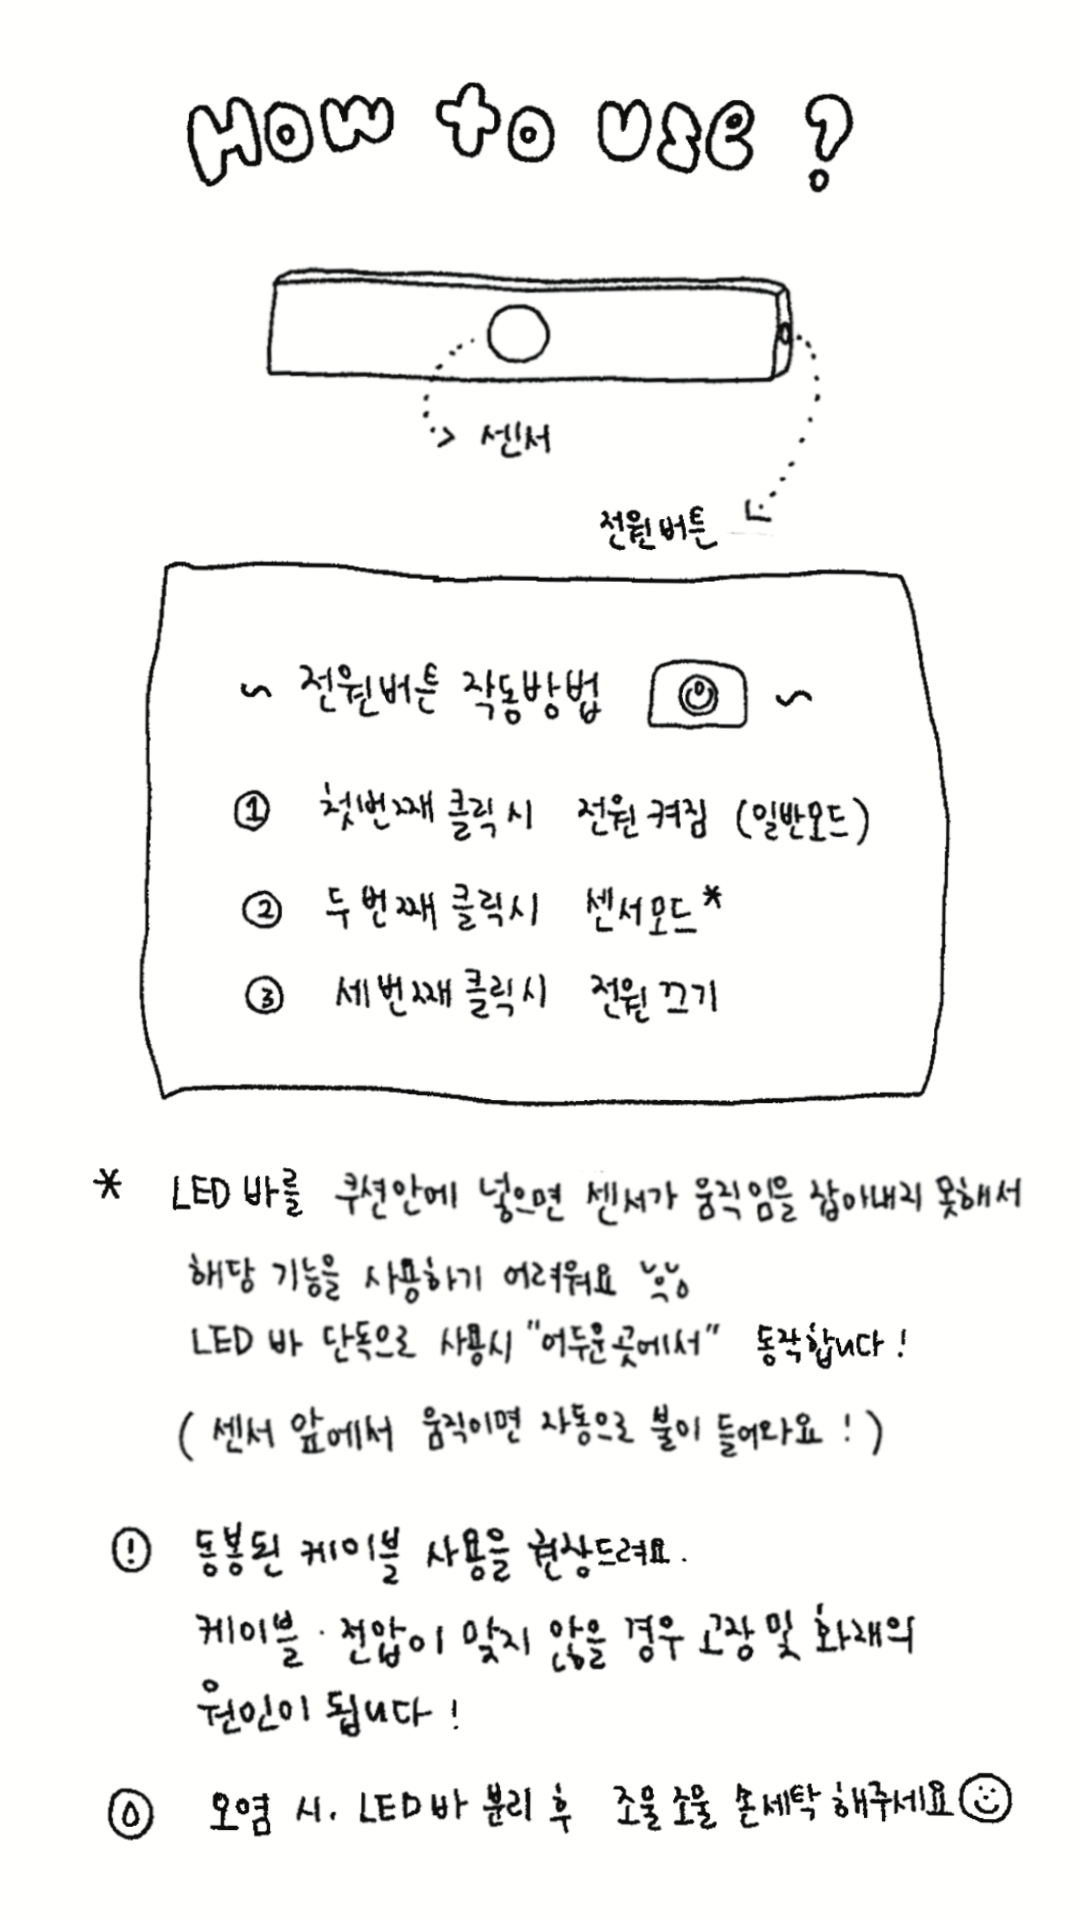 How to use ?
센서
전원버튼
~ 전원버튼 작동방법 ~
① 첫번째 클릭 시 전원 켜짐 (일반모드)
② 두 번째 클릭시 센서모드*
③ 세 번째 클릭시 전원 끄기
* LED 바를 쿠션안에 넣으면 센서가 움직임을 잡아내지 못해서
해당 기능을 사용하기 어려워요
LED 바 단독으로 사용시 "어두운 곳에서" 동작합니다 !
( 센서 앞에서 움직이면 자동으로 불이 들어와요 ! )
! 동봉된 케이블 사용을 권장드려요.
케이블 · 전압이 맞지 않을 경우 고장 및 화재의
원인이 됩니다 !
오염 시, LED 바 분리 후 조물조물 손세탁 해주세요